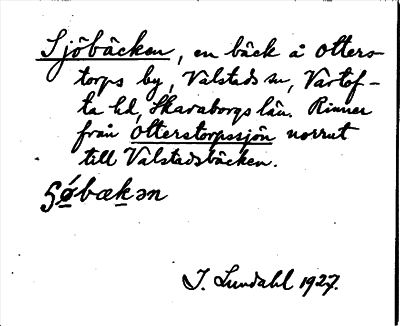 Sjöbäcken, en bäck å Otters-
torps by, Valstads sn, Vartof-
ta hd, Skaraborgs län. Rinner
från Otterstorpssjön norrut
till Valstadsbäcken.
ʂǿbækən
I. Lundahl 1927.